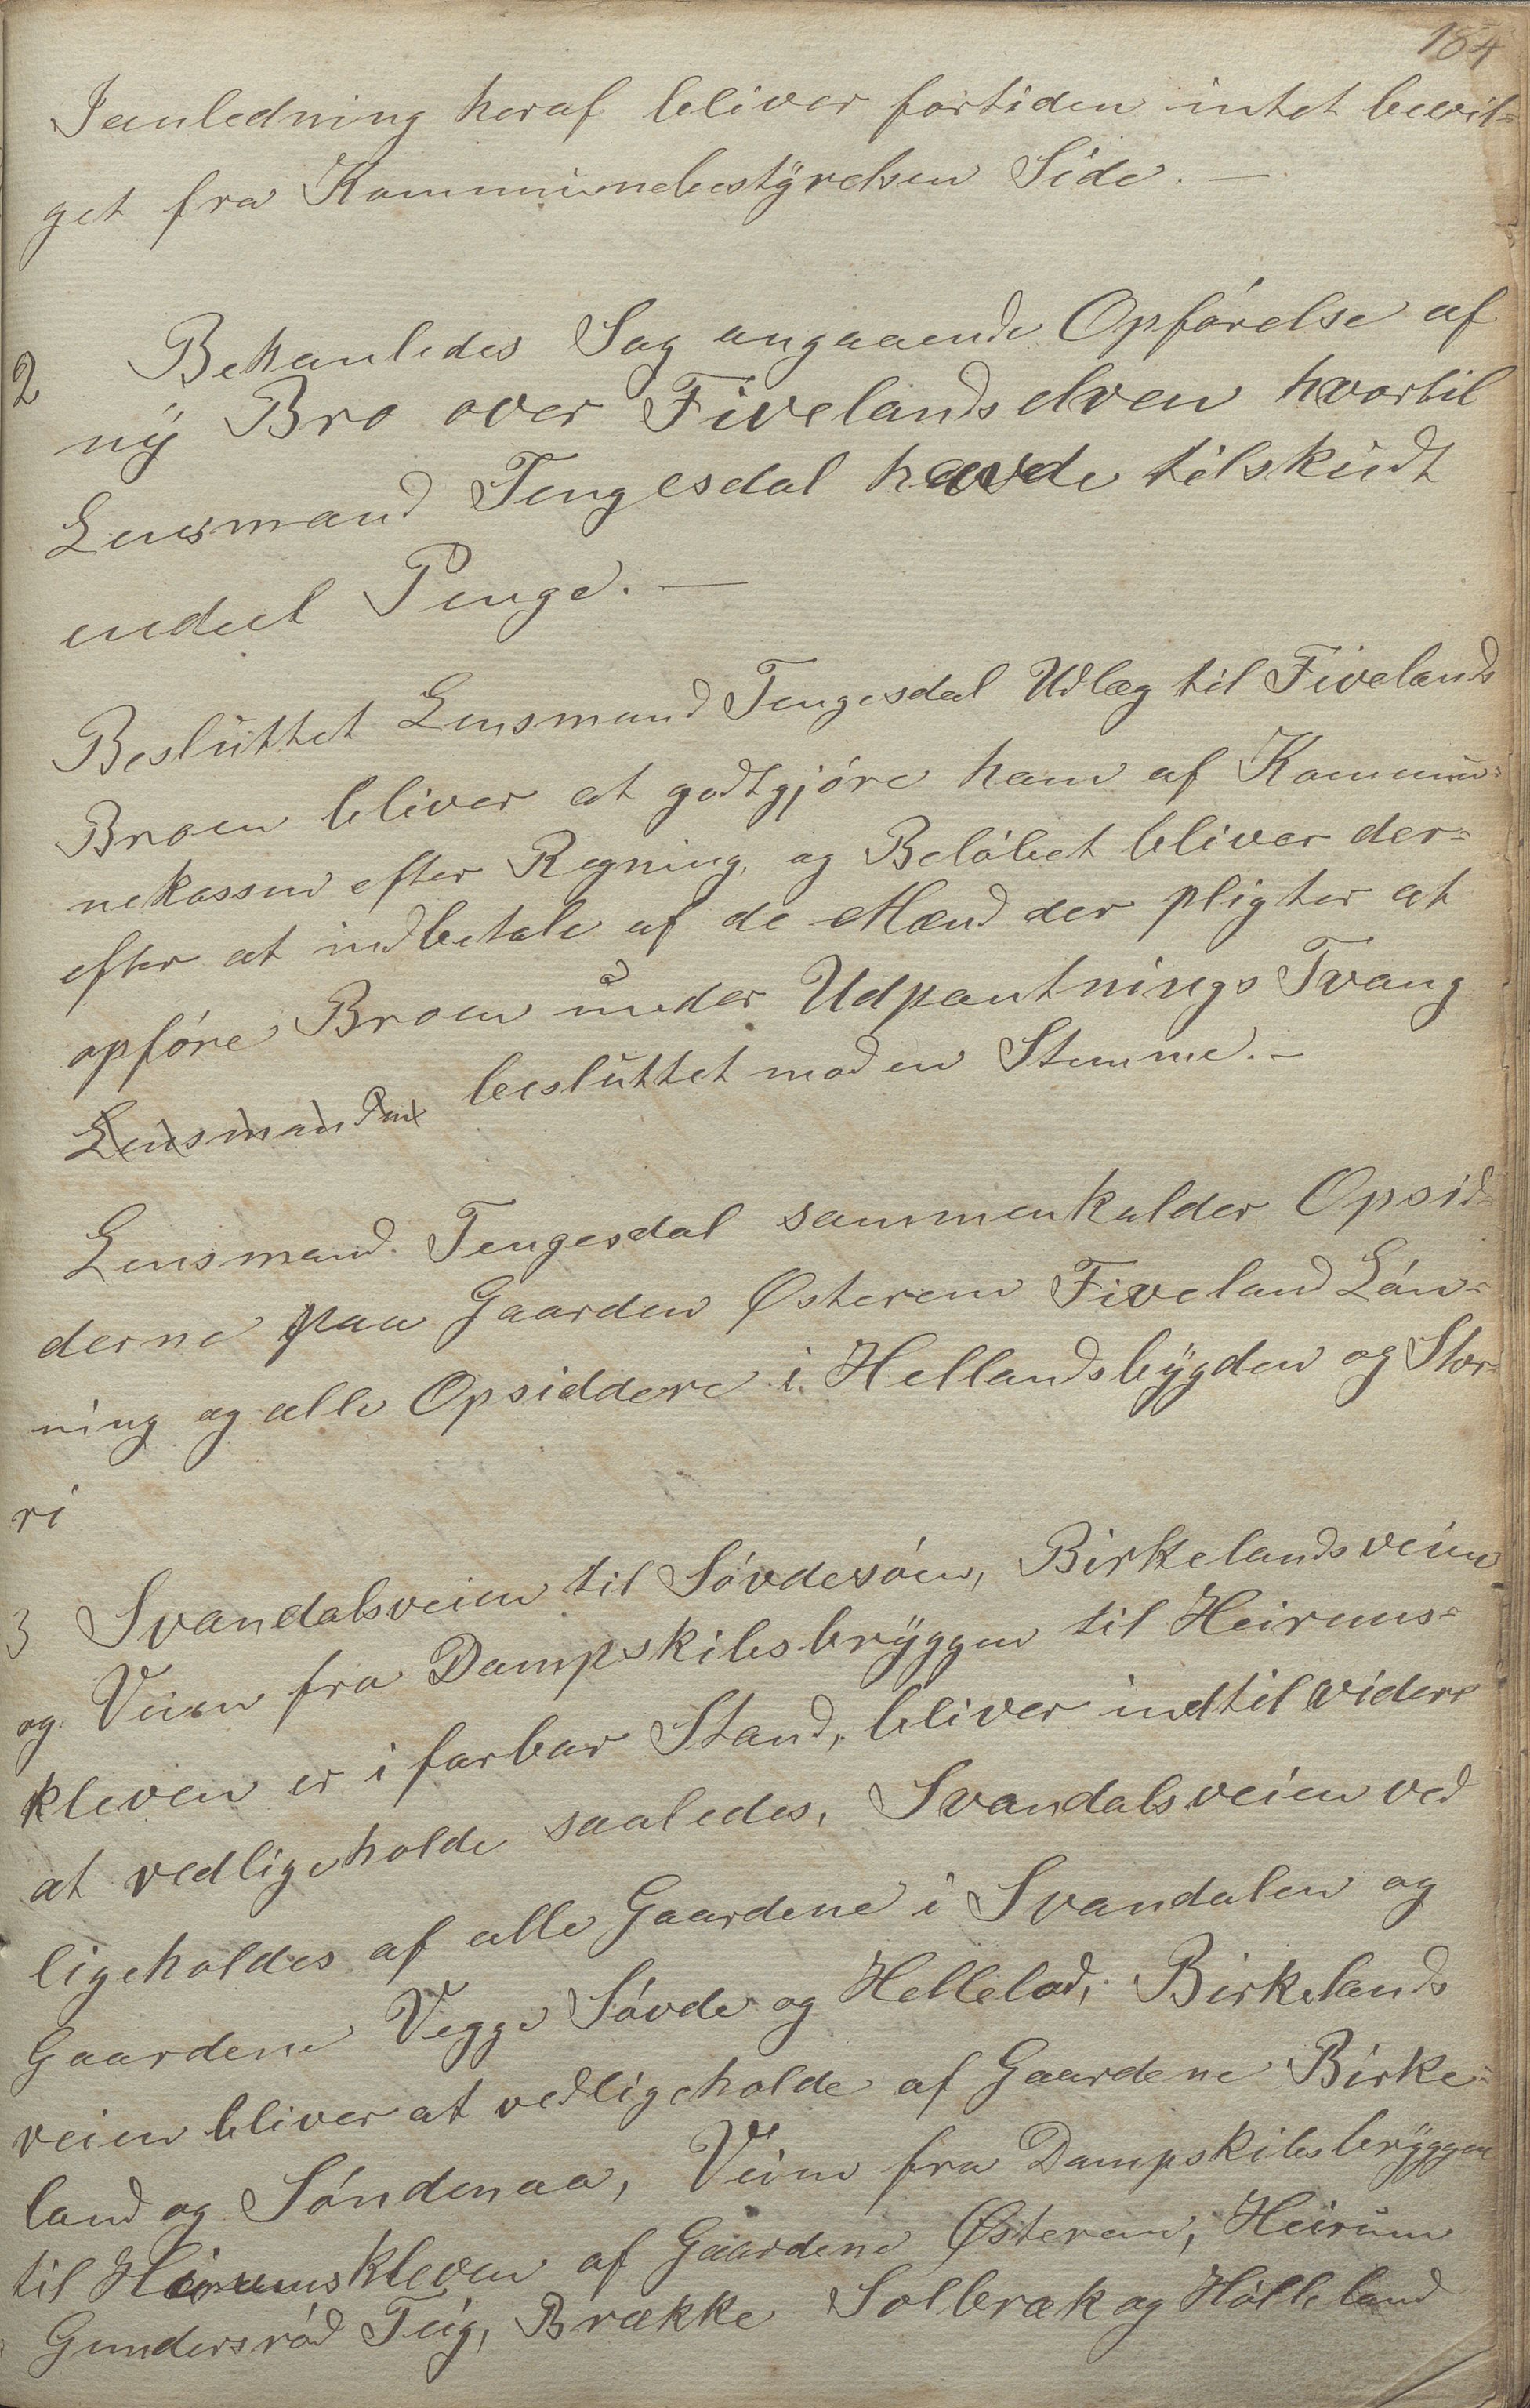 184
Ianledning heraf bliver fortiden intet bevil=
get fra Kommunebestyrelsen Side. —
2 Behanledes Sag angaaende Opførelse af
ny Bro over Fivelandselven hvortil
Lensmand Tengesdal havde tilskudt
endeel Penge. —
Besluttet Lensmand Tengesdal Udlæg til Fivelands
Broen bliver at godtgjøre ham af Kommu=
nekassen efter Regning, og Beløbet bliver der=
efter at indbetale af de Mænd der pligter at
opføre Broen under Udpantnings Tvang
Lensmanden besluttet mod en Stemme. —
Lensmand Tengesdal sammenkalder Opsid=
derne paa Gaarden Østerem Fiveland Løn=
ning og alle Opsiddere i Hellandsbygden og Stor
ri
3 Svandalsveien til Søvdesøen, Birkelandsveien
og Veien fra Dampskibsbryggen til Heirems=
kleven er i farbar Stand, bliver indtil videre
at vedligeholde saaledes, Svandalsveien ved
ligeholdes af alle Gaardene i Svandalen og
Gaardene Vegge Søvde og Hellelod; Birkelands
veien bliver at vedligeholde af Gaardene Birke=
land og Søndenaa, Veien fra Dampskibsbryggen
til Heiremskleven af Gaardene Østerem, Heirem
Gundersrød Teig, Brække Solbræk og Hølleland